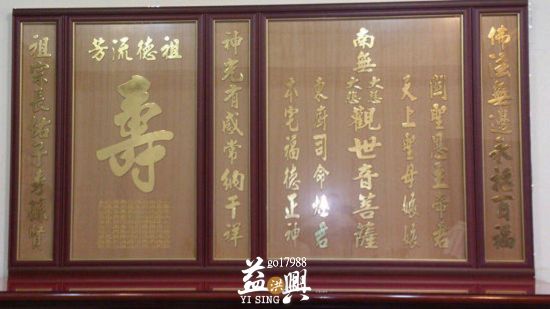 佛法無邊永挹百福
關聖恩主帝君
天上聖母娘娘
南無大慈大悲觀世音菩薩
東廚司命灶君
本宅福德正神
神光有感常納千祥
祖德流芳
壽
祖宗長佑子孝孫賢
go17988
益洪興
YI SING